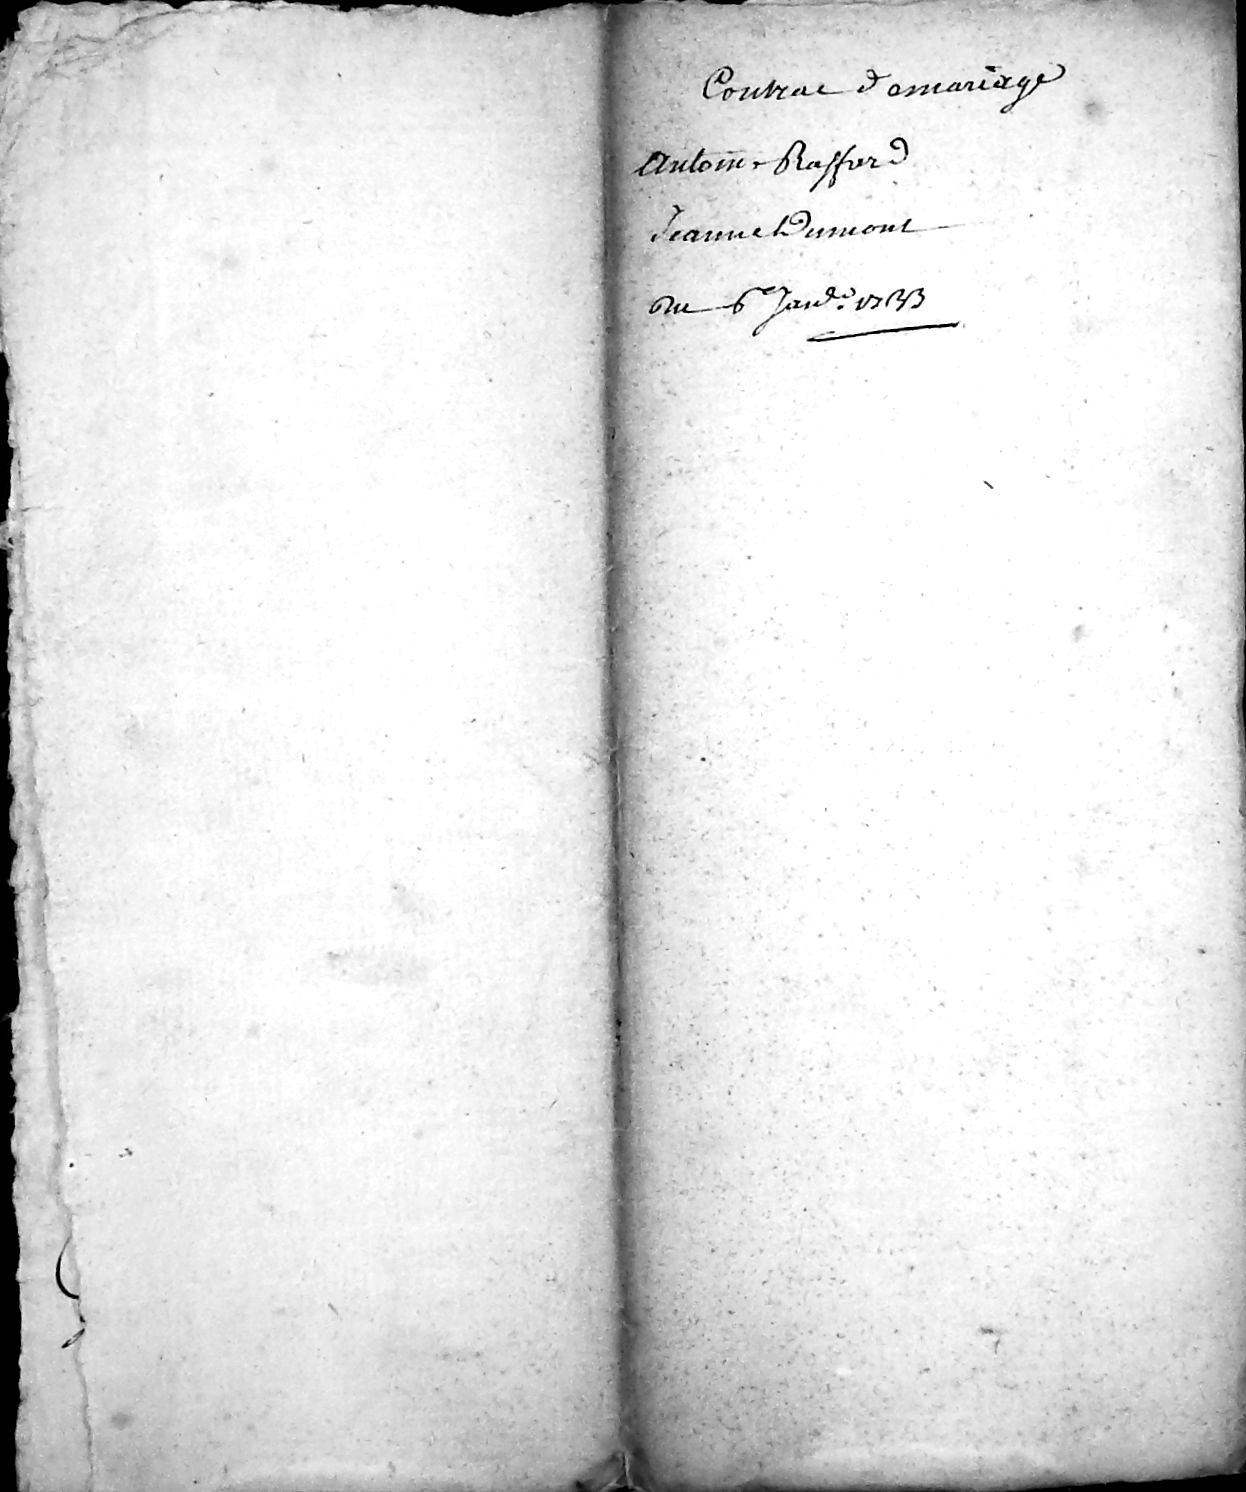 Contrac de mariage
Antoine Raffard
Jeanne Dumont
Du 6e Janv.er 1733